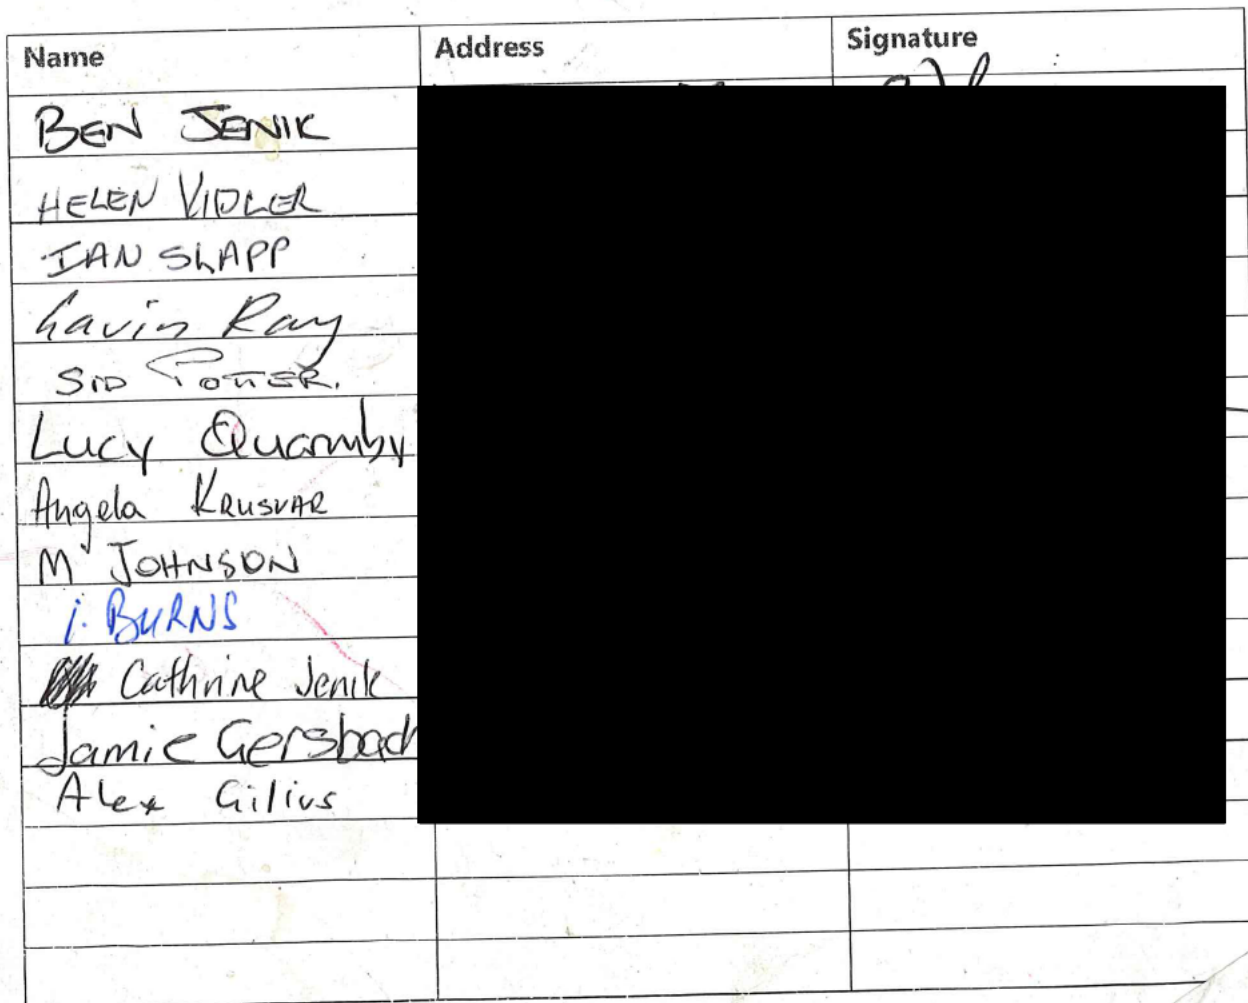 Name Address Signature
BEN JENIK
HELEN VIDLER
IAN SLAPP
Gavin Ray
SID POTTER.
Lucy Quarmby
Angela KRUSVAR
M JOHNSON
i. BURNS
Cathrine Jenik
Jamie Gersbach
Alex Gilius